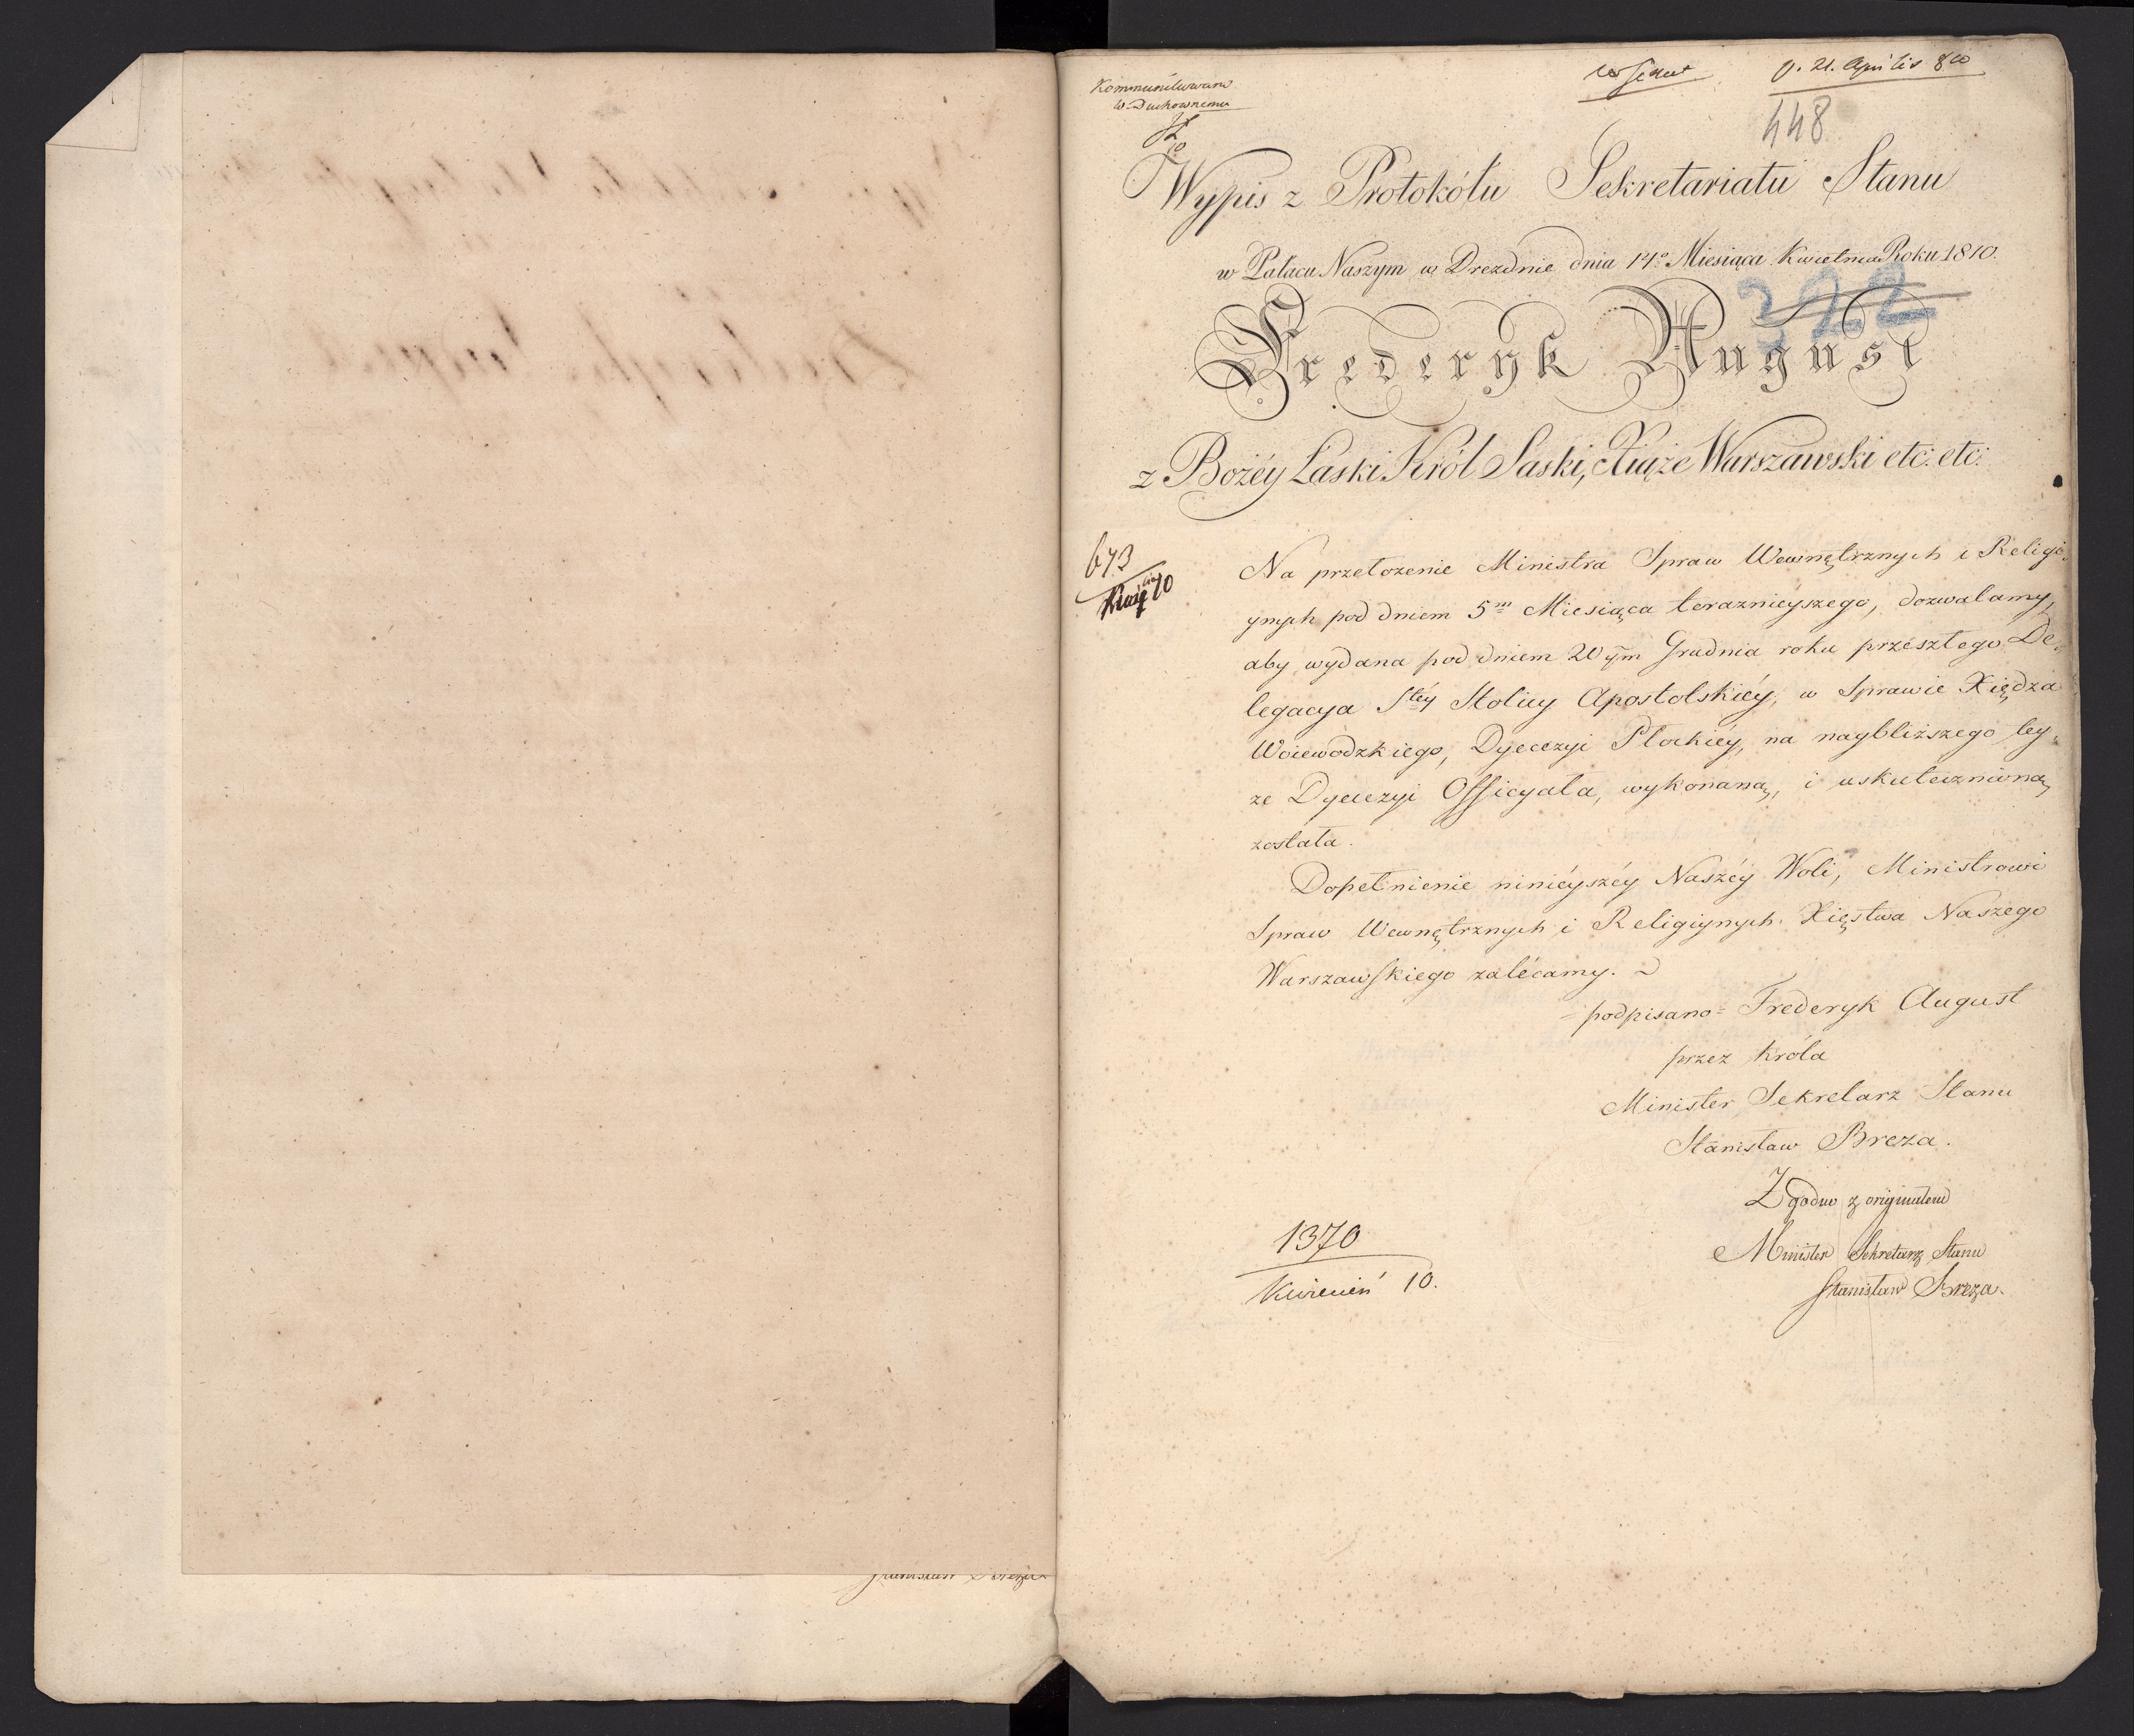 Kommunikowano
W. Duchownemu
p. 21. Aprilis 810
448
Wypis z Protokółu Sekretariatu Stanu
w Pałacu Naszym w Dreznie dnia 14º Miesiąca Kwietnia Roku 1810.
322
Frederyk August
z Bożéy Łaski Król Saski, Xiąże Warszawski etc: etc:
673
Kwie 10
Na przełozenie Ministra Spraw Wewnętrznych i Religi-
ynych pod dniem 5m Miesiąca teraznieyszego, dozwalamy,
aby wydana pod dniem 20ym Grudnia roku przeszłego De-
legacya Stéy Stolicy Apostolskiéy, w Sprawie Xiędza
Woiewodzkiego, Dyecezyi Płockiéy, na naybliższego tey-
ze Dyecezyi Officyała, wykonaną, i uskutecznioną
została.
Dopełnienie ninieyszéy Naszéy Woli, Ministrowi
Spraw Wewnętrznych i Religiynych Xięstwa Naszego
Warszawskiego zalécamy.
= podpisano = Frederyk August
przez Króla
Minister Sekretarz Stanu
Stanisław Breza.
Zgodno z originałem
Minister Sekretarz Stanu
Stanisław Breza.
1370
Kwiecień 10.
Stanisław Breza